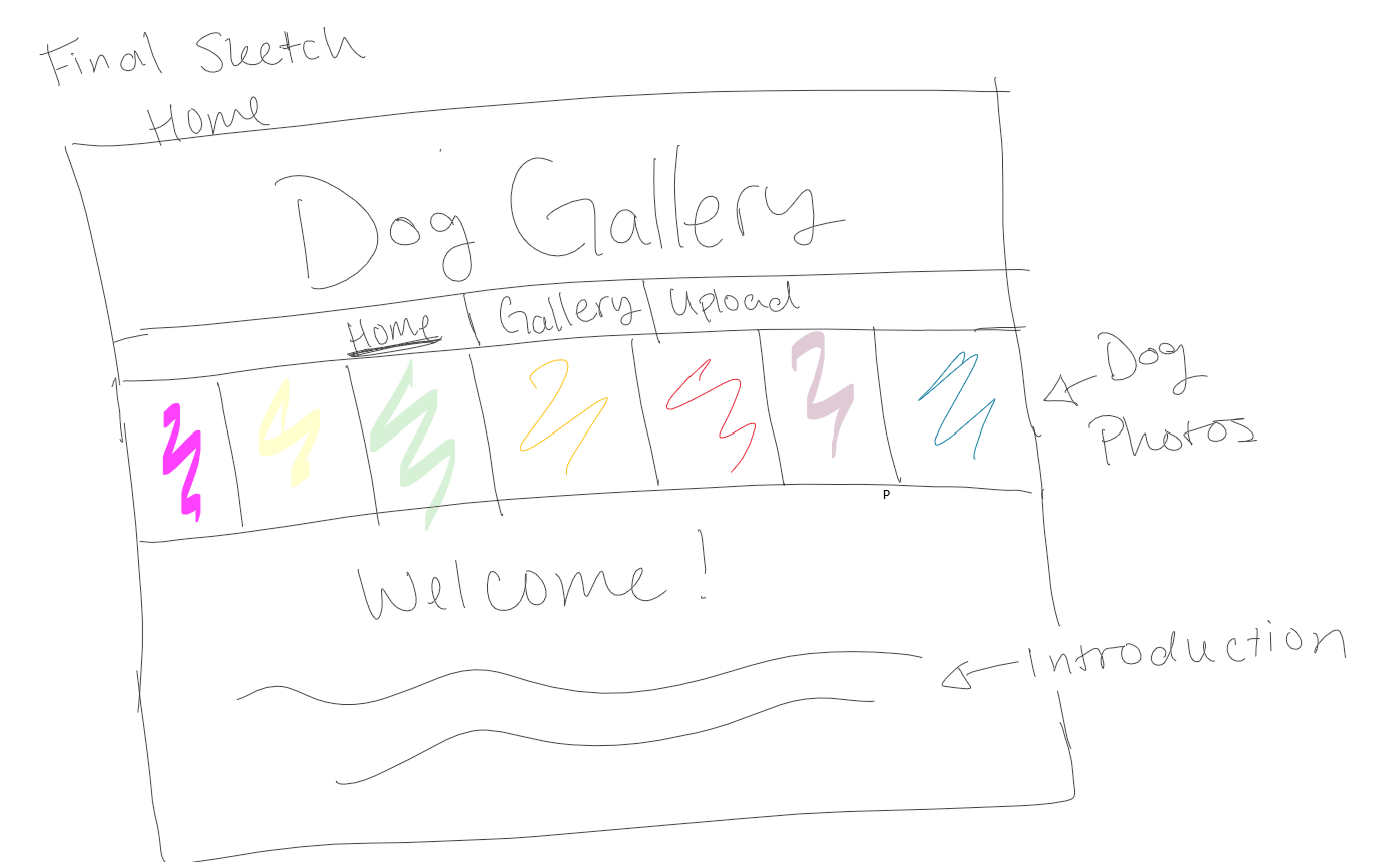 Final Sketch
Home
Dog Gallery
Home Gallery Upload
Dog
Photos
P
Welcome!
Introduction